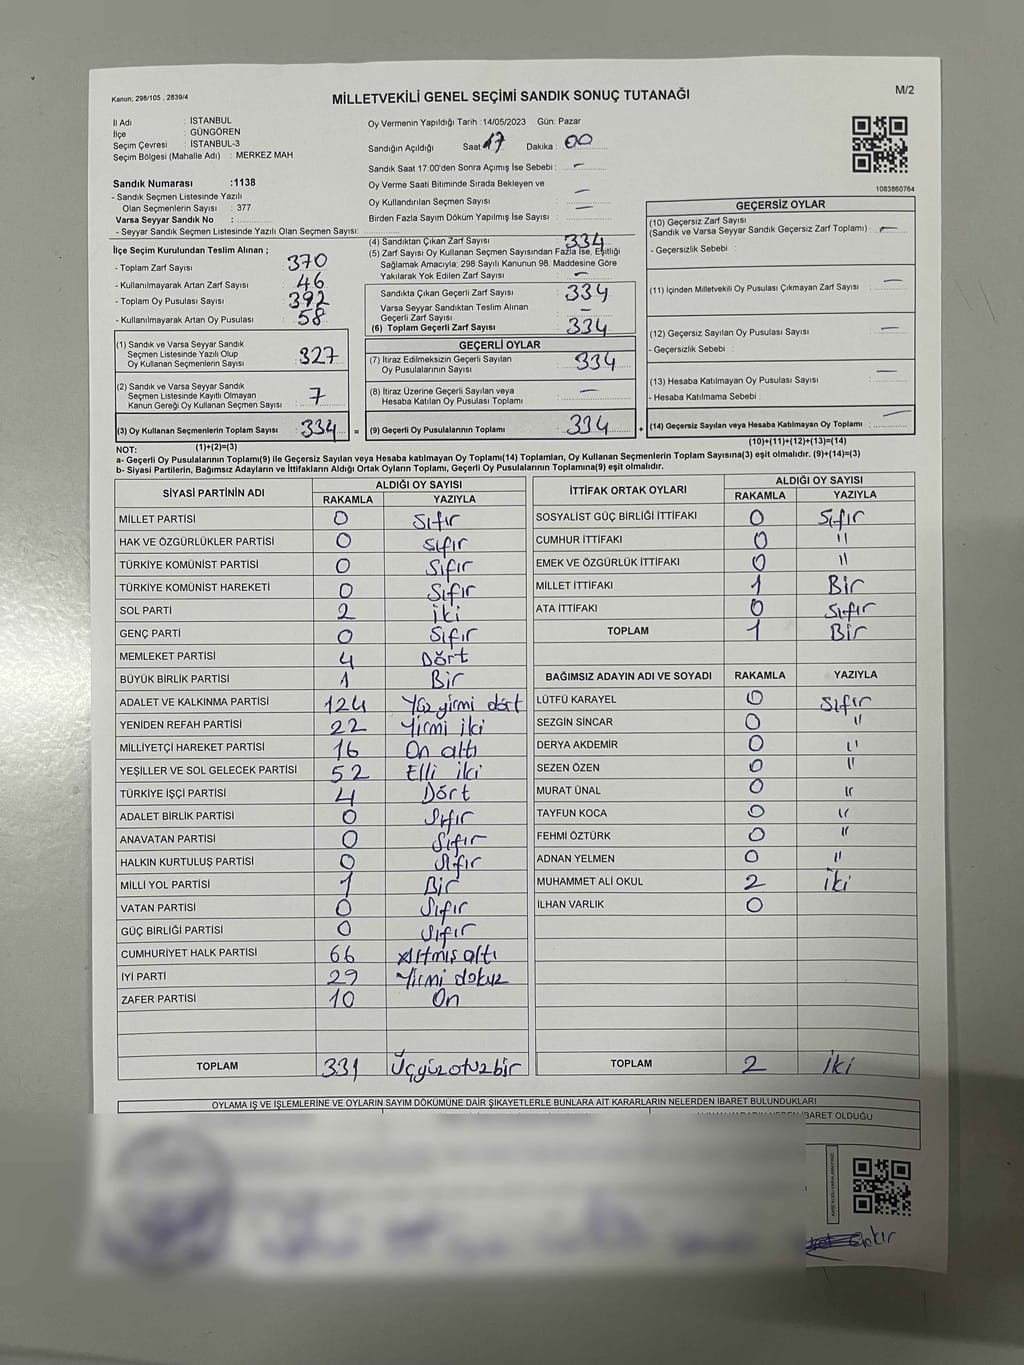 Kanun; 298/105 , 2839/4
MİLLETVEKİLİ GENEL SEÇİMİ SANDIK SONUÇ TUTANAĞI
M/2
İl Adı : İSTANBUL
İlçe : GÜNGÖREN
Seçim Çevresi : İSTANBUL-3
Seçim Bölgesi (Mahalle Adı) : MERKEZ MAH.
Sandık Numarası :1138
- Sandık Seçmen Listesinde Yazılı
Olan Seçmenlerin Sayısı : 377
Varsa Seyyar Sandık No :
- Seyyar Sandık Seçmen Listesinde Yazılı Olan Seçmen Sayısı:
Oy Vermenin Yapıldığı Tarih : 14/05/2023 Gün: Pazar
Sandığın Açıldığı Saat 17 Dakika : 00
Sandık Saat 17:00'den Sonra Açımış İse Sebebi : -
Oy Verme Saati Bitiminde Sırada Bekleyen ve
Oy Kullandırılan Seçmen Sayısı -
Birden Fazla Sayım Döküm Yapılmış İse Sayısı : -
1083860764
İlçe Seçim Kurulundan Teslim Alınan ;
- Toplam Zarf Sayısı : 370
- Kullanılmayarak Artan Zarf Sayısı : 46
- Toplam Oy Pusulası Sayısı : 392
- Kullanılmayarak Artan Oy Pusulası : 58
(1) Sandık ve Varsa Seyyar Sandık
Seçmen Listesinde Yazılı Olup
Oy Kullanan Seçmenlerin Sayısı : 327
(2) Sandık ve Varsa Seyyar Sandık
Seçmen Listesinde Kayıtlı Olmayan
Kanun Gereği Oy Kullanan Seçmen Sayısı : 7
(3) Oy Kullanan Seçmenlerin Toplam Sayısı : 334 =
(1)+(2)=(3)
(4) Sandıktan Çıkan Zarf Sayısı : 334
(5) Zarf Sayısı Oy Kullanan Seçmen Sayısından Fazla İse, Eşitliği
Sağlamak Amacıyla; 298 Sayılı Kanunun 98. Maddesine Göre
Yakılarak Yok Edilen Zarf Sayısı : -
Sandıkta Çıkan Geçerli Zarf Sayısı : 334
Varsa Seyyar Sandıktan Teslim Alınan
Geçerli Zarf Sayısı : -
(6) Toplam Geçerli Zarf Sayısı : 334
GEÇERLİ OYLAR
(7) İtiraz Edilmeksizin Geçerli Sayılan
Oy Pusulalarının Sayısı : 334
(8) İtiraz Üzerine Geçerli Sayılan veya
Hesaba Katılan Oy Pusulası Toplamı : -
(9) Geçerli Oy Pusulalarının Toplamı : 334 +
GEÇERSİZ OYLAR
(10) Geçersiz Zarf Sayısı
(Sandık ve Varsa Seyyar Sandık Geçersiz Zarf Toplamı) : -
- Geçersizlik Sebebi :
(11) İçinden Milletvekili Oy Pusulası Çıkmayan Zarf Sayısı : -
(12) Geçersiz Sayılan Oy Pusulası Sayısı : -
- Geçersizlik Sebebi :
(13) Hesaba Katılmayan Oy Pusulası Sayısı : -
- Hesaba Katılmama Sebebi :
(14) Geçersiz Sayılan veya Hesaba Katılmayan Oy Toplamı : -
(10)+(11)+(12)+(13)=(14)
NOT:
a- Geçerli Oy Pusulalarının Toplamı(9) ile Geçersiz Sayılan veya Hesaba katılmayan Oy Toplamı(14) Toplamları, Oy Kullanan Seçmenlerin Toplam Sayısına(3) eşit olmalıdır. (9)+(14)=(3)
b- Siyasi Partilerin, Bağımsız Adayların ve İttifakların Aldığı Ortak Oyların Toplamı, Geçerli Oy Pusulalarının Toplamına(9) eşit olmalıdır.
SİYASİ PARTİNİN ADI ALDIĞI OY SAYISI
RAKAMLA YAZIYLA
MİLLET PARTİSİ 0 Sıfır
HAK VE ÖZGÜRLÜKLER PARTİSİ 0 Sıfır
TÜRKİYE KOMÜNİST PARTİSİ 0 Sıfır
TÜRKİYE KOMÜNİST HAREKETİ 0 Sıfır
SOL PARTİ 2 iki
GENÇ PARTİ 0 Sıfır
MEMLEKET PARTİSİ 4 Dört
BÜYÜK BİRLİK PARTİSİ 1 Bir
ADALET VE KALKINMA PARTİSİ 124 Yüz yirmi dört
YENİDEN REFAH PARTİSİ 22 Yirmi iki
MİLLİYETÇİ HAREKET PARTİSİ 16 On altı
YEŞİLLER VE SOL GELECEK PARTİSİ 52 Elli iki
TÜRKİYE İŞÇİ PARTİSİ 4 Dört
ADALET BİRLİK PARTİSİ 0 Sıfır
ANAVATAN PARTİSİ 0 Sıfır
HALKIN KURTULUŞ PARTİSİ 0 Sıfır
MİLLİ YOL PARTİSİ 1 Bir
VATAN PARTİSİ 0 Sıfır
GÜÇ BİRLİĞİ PARTİSİ 0 Sıfır
CUMHURİYET HALK PARTİSİ 66 Altmış altı
İYİ PARTİ 29 Yirmi dokuz
ZAFER PARTİSİ 10 On
TOPLAM 331 Üçyüzotuzbir
İTTİFAK ORTAK OYLARI ALDIĞI OY SAYISI
RAKAMLA YAZIYLA
SOSYALİST GÜÇ BİRLİĞİ İTTİFAKI 0 Sıfır
CUMHUR İTTİFAKI 0 "
EMEK VE ÖZGÜRLÜK İTTİFAKI 0 "
MİLLET İTTİFAKI 1 Bir
ATA İTTİFAKI 0 Sıfır
TOPLAM 1 Bir
BAĞIMSIZ ADAYIN ADI VE SOYADI RAKAMLA YAZIYLA
LÜTFÜ KARAYEL 0 Sıfır
SEZGİN SİNCAR 0 "
DERYA AKDEMİR 0 "
SEZEN ÖZEN 0 "
MURAT ÜNAL 0 "
TAYFUN KOCA 0 "
FEHMİ ÖZTÜRK 0 "
ADNAN YELMEN 0 "
MUHAMMET ALİ OKUL 2 iki
İLHAN VARLIK 0
TOPLAM 2 iki
OYLAMA İŞ VE İŞLEMLERİNE VE OYLARIN SAYIM DÖKÜMÜNE DAİR ŞİKAYETLERLE BUNLARA AİT KARARLARIN NELERDEN İBARET BULUNDUKLARI
İBARET OLDUĞU